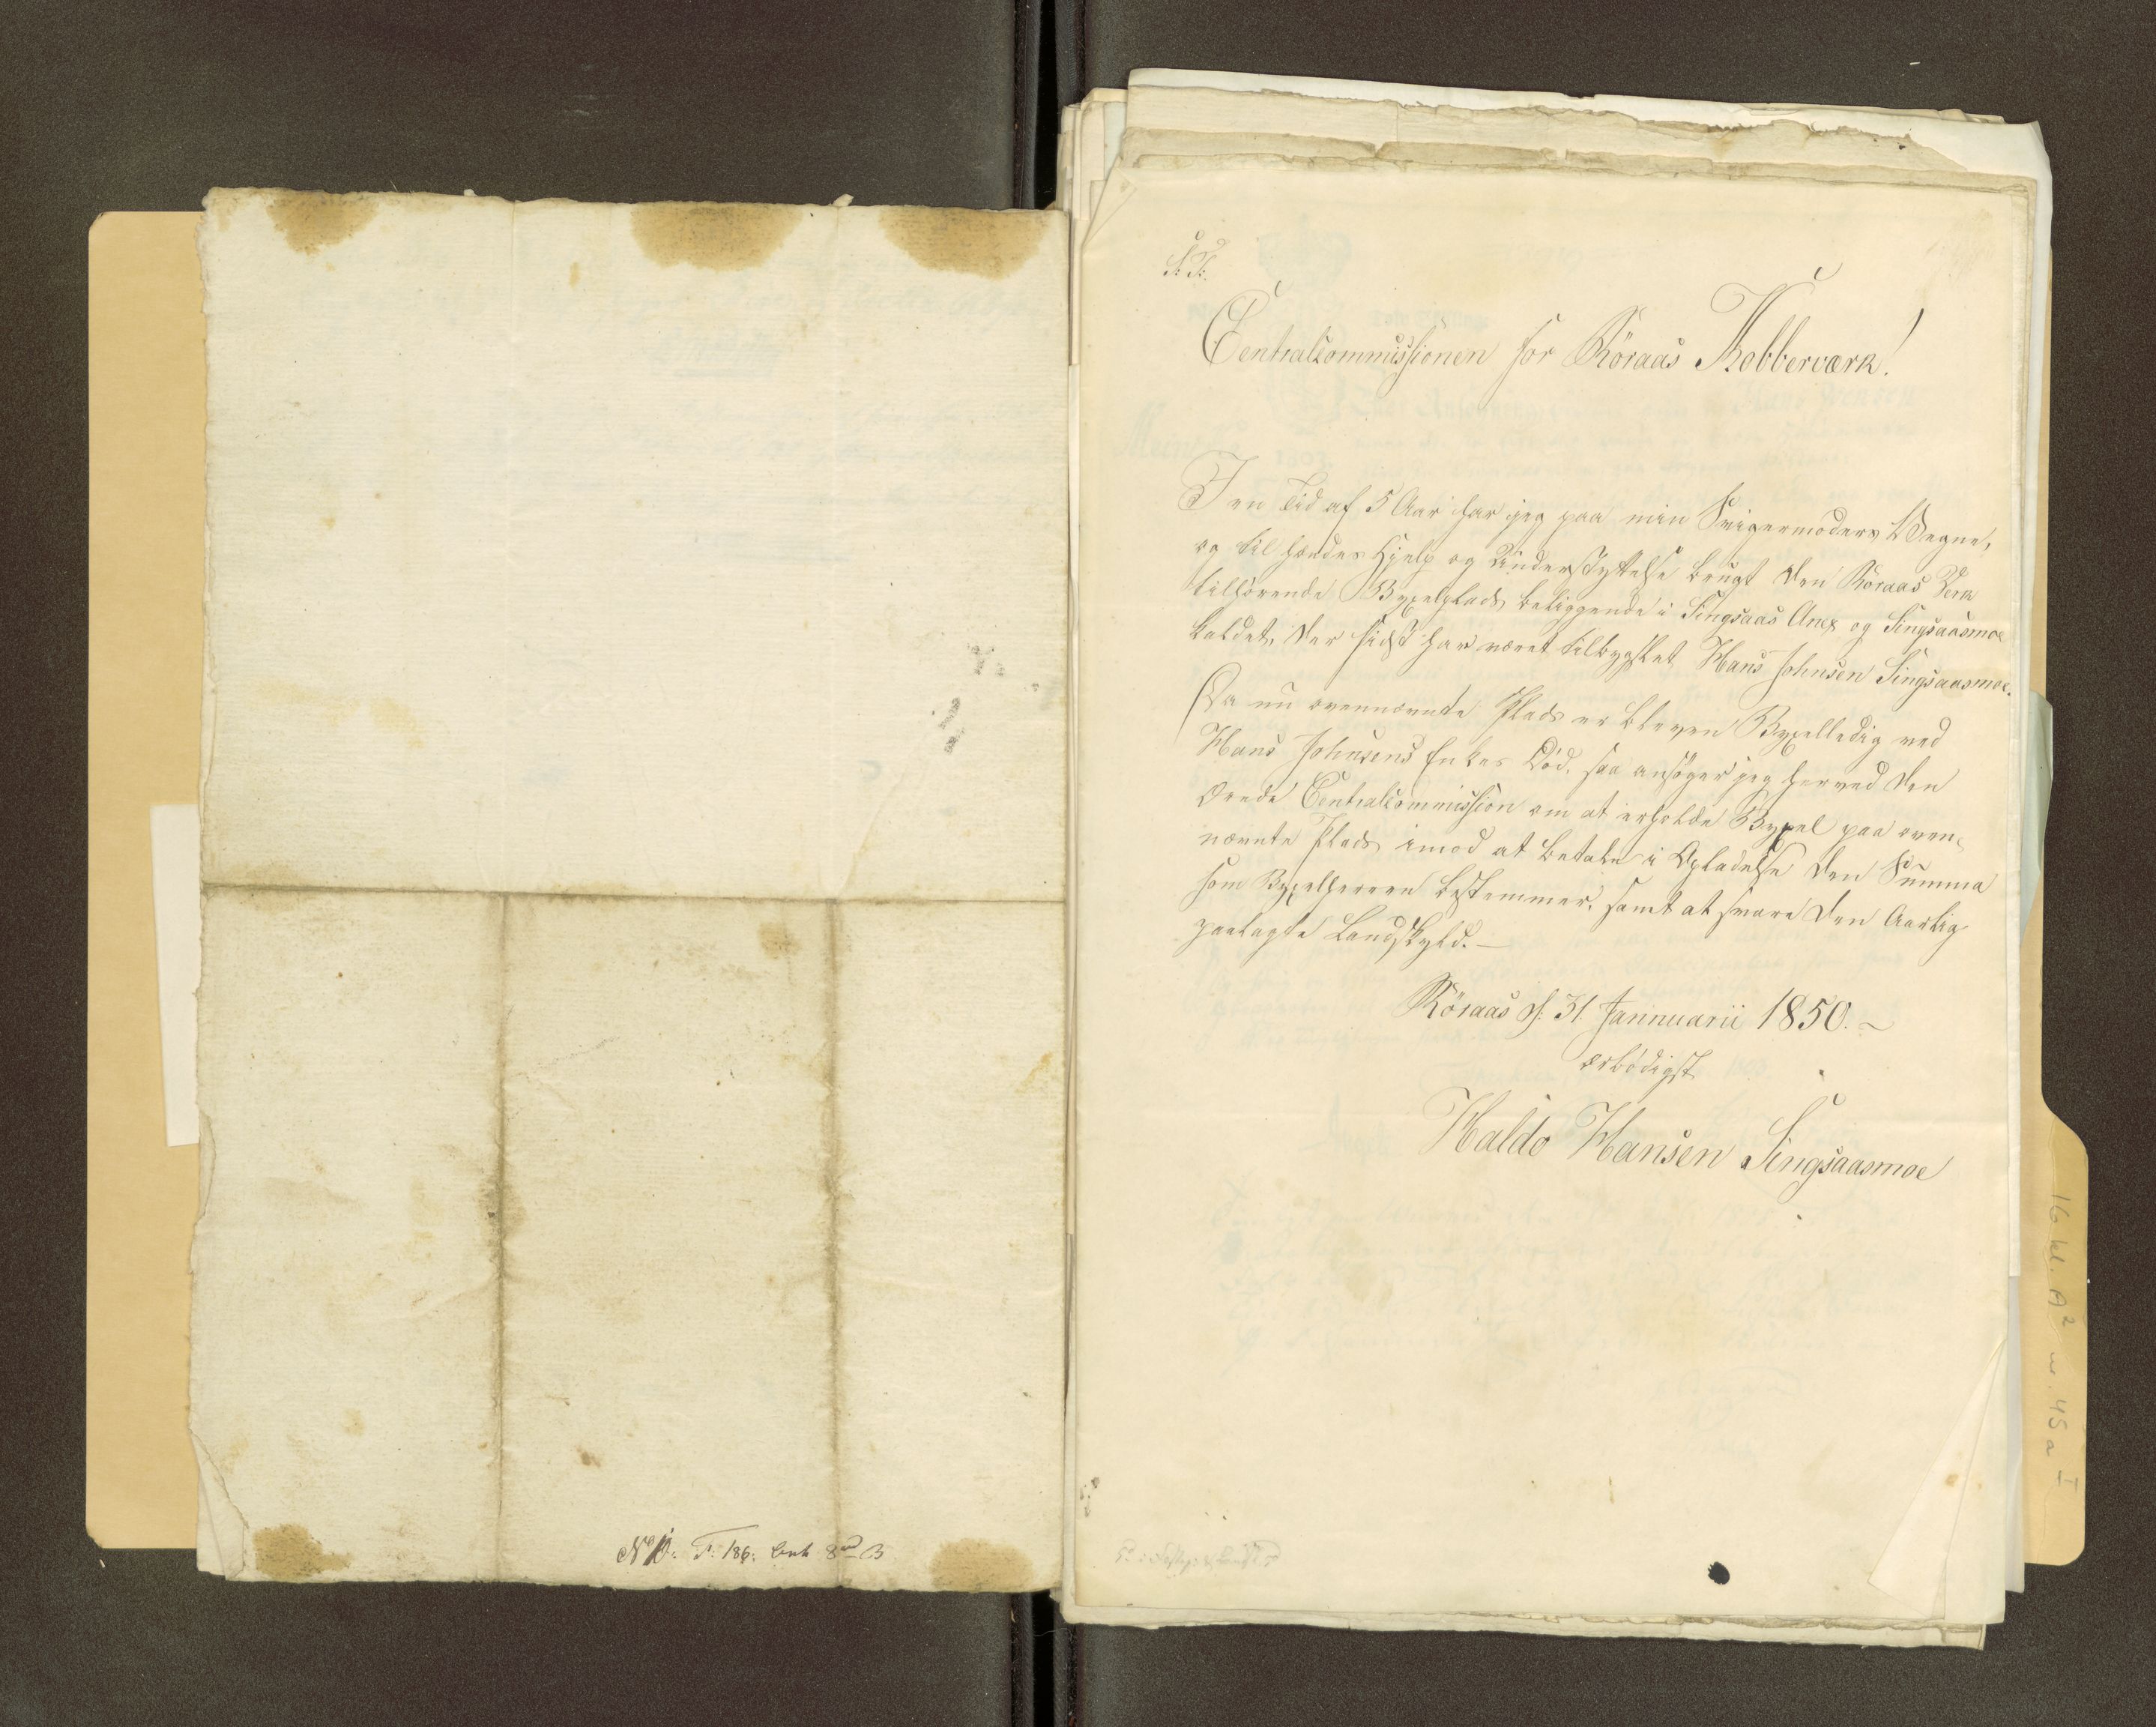 No 10. F: 186. Senh 8de B
S. T.
Centralcommissionen for Röraas Kobberværk!
I en Tid af 5 Aar har jeg paa min Svigermoders Vegne,
og til hendes Hjelp og Understyttelse brugt den Röraas Verk
tilhörende Bygselplads beliggende i Singsaas Anex og Singsaasmoe
kaldet, der sidst har været tilbygslet Hans Johnsen Singsaasmoe.
Da nu ovennævnte Plads er bleven Bygselledig ved
Hans Johnsens Enkes Död, saa ansöger jeg herved den
Ærede Centralcommission om at erholde Bygsel paa oven-
nævnte Plads imod at betale i Opladelse den Summa
som Bygselherren bestemmer, samt at svare den Aarlig
paalagte Landskyld.—
Röraas d: 31 Jannuarii 1850.~
ærbödigst
Haldo Hansen Singsaasmoe
16 kl. A2 nr. 45 a I